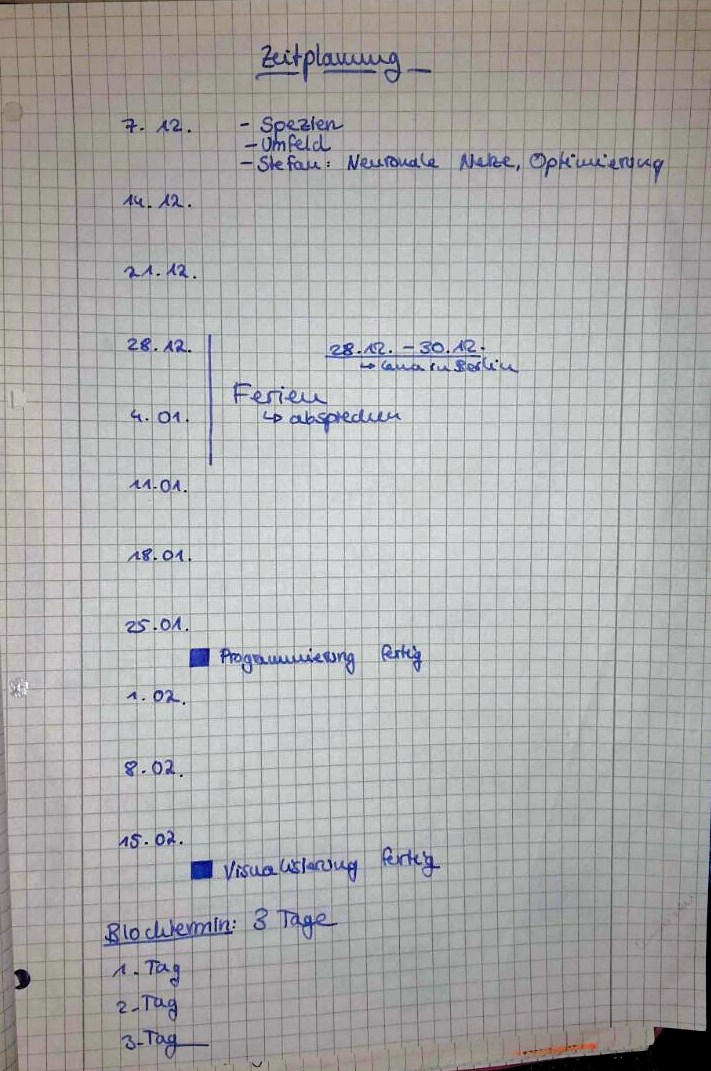 Zeitplanung
7.12. - Spezien
- Umfeld
- Stefan: Neuronale Netze, Optimierung
14.12.
21.12.
28.12. 28.12. - 30.12.
↳ Lena in Berlin
Ferien
4.01. ↳ absprechen
11.01.
18.01.
25.01.
Programmierung fertig
1.02.
8.02.
15.02.
Visualisierung fertig
Blocktermin: 3 Tage
1. Tag
2. Tag
3. Tag